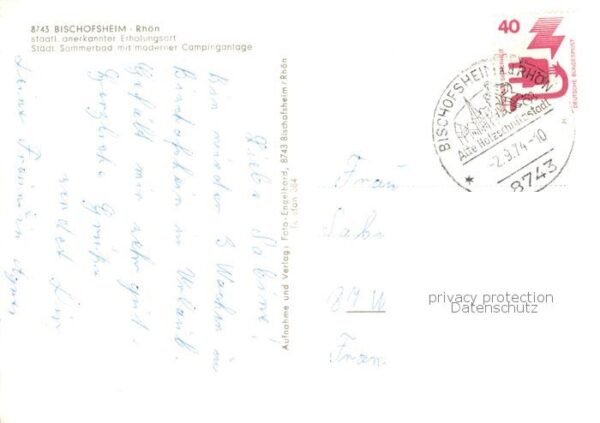 8743 BISCHOFSHEIM - Rhön
staatl. anerkannter Erholungsort
Städt. Sommerbad mit moderner Campinganlage
Liebe Sabine!
Bin wieder 3 Wochen in
Bischofsheim in Urlaub.
Gefällt mir sehr gut.
Herzliche Grüße
sendet Dir
Deine Freundin
Aufnahme und Verlag: Foto-Engelhard, 8743 Bischofsheim/Rhön
40
DEUTSCHE BUNDESPOST
BISCHOFSHEIM a.d. RHÖN
Alte Holzschnitzstadt
-2.9.74-10
8743
Frau
Sab
87
Fran
privacy protection
Datenschutz